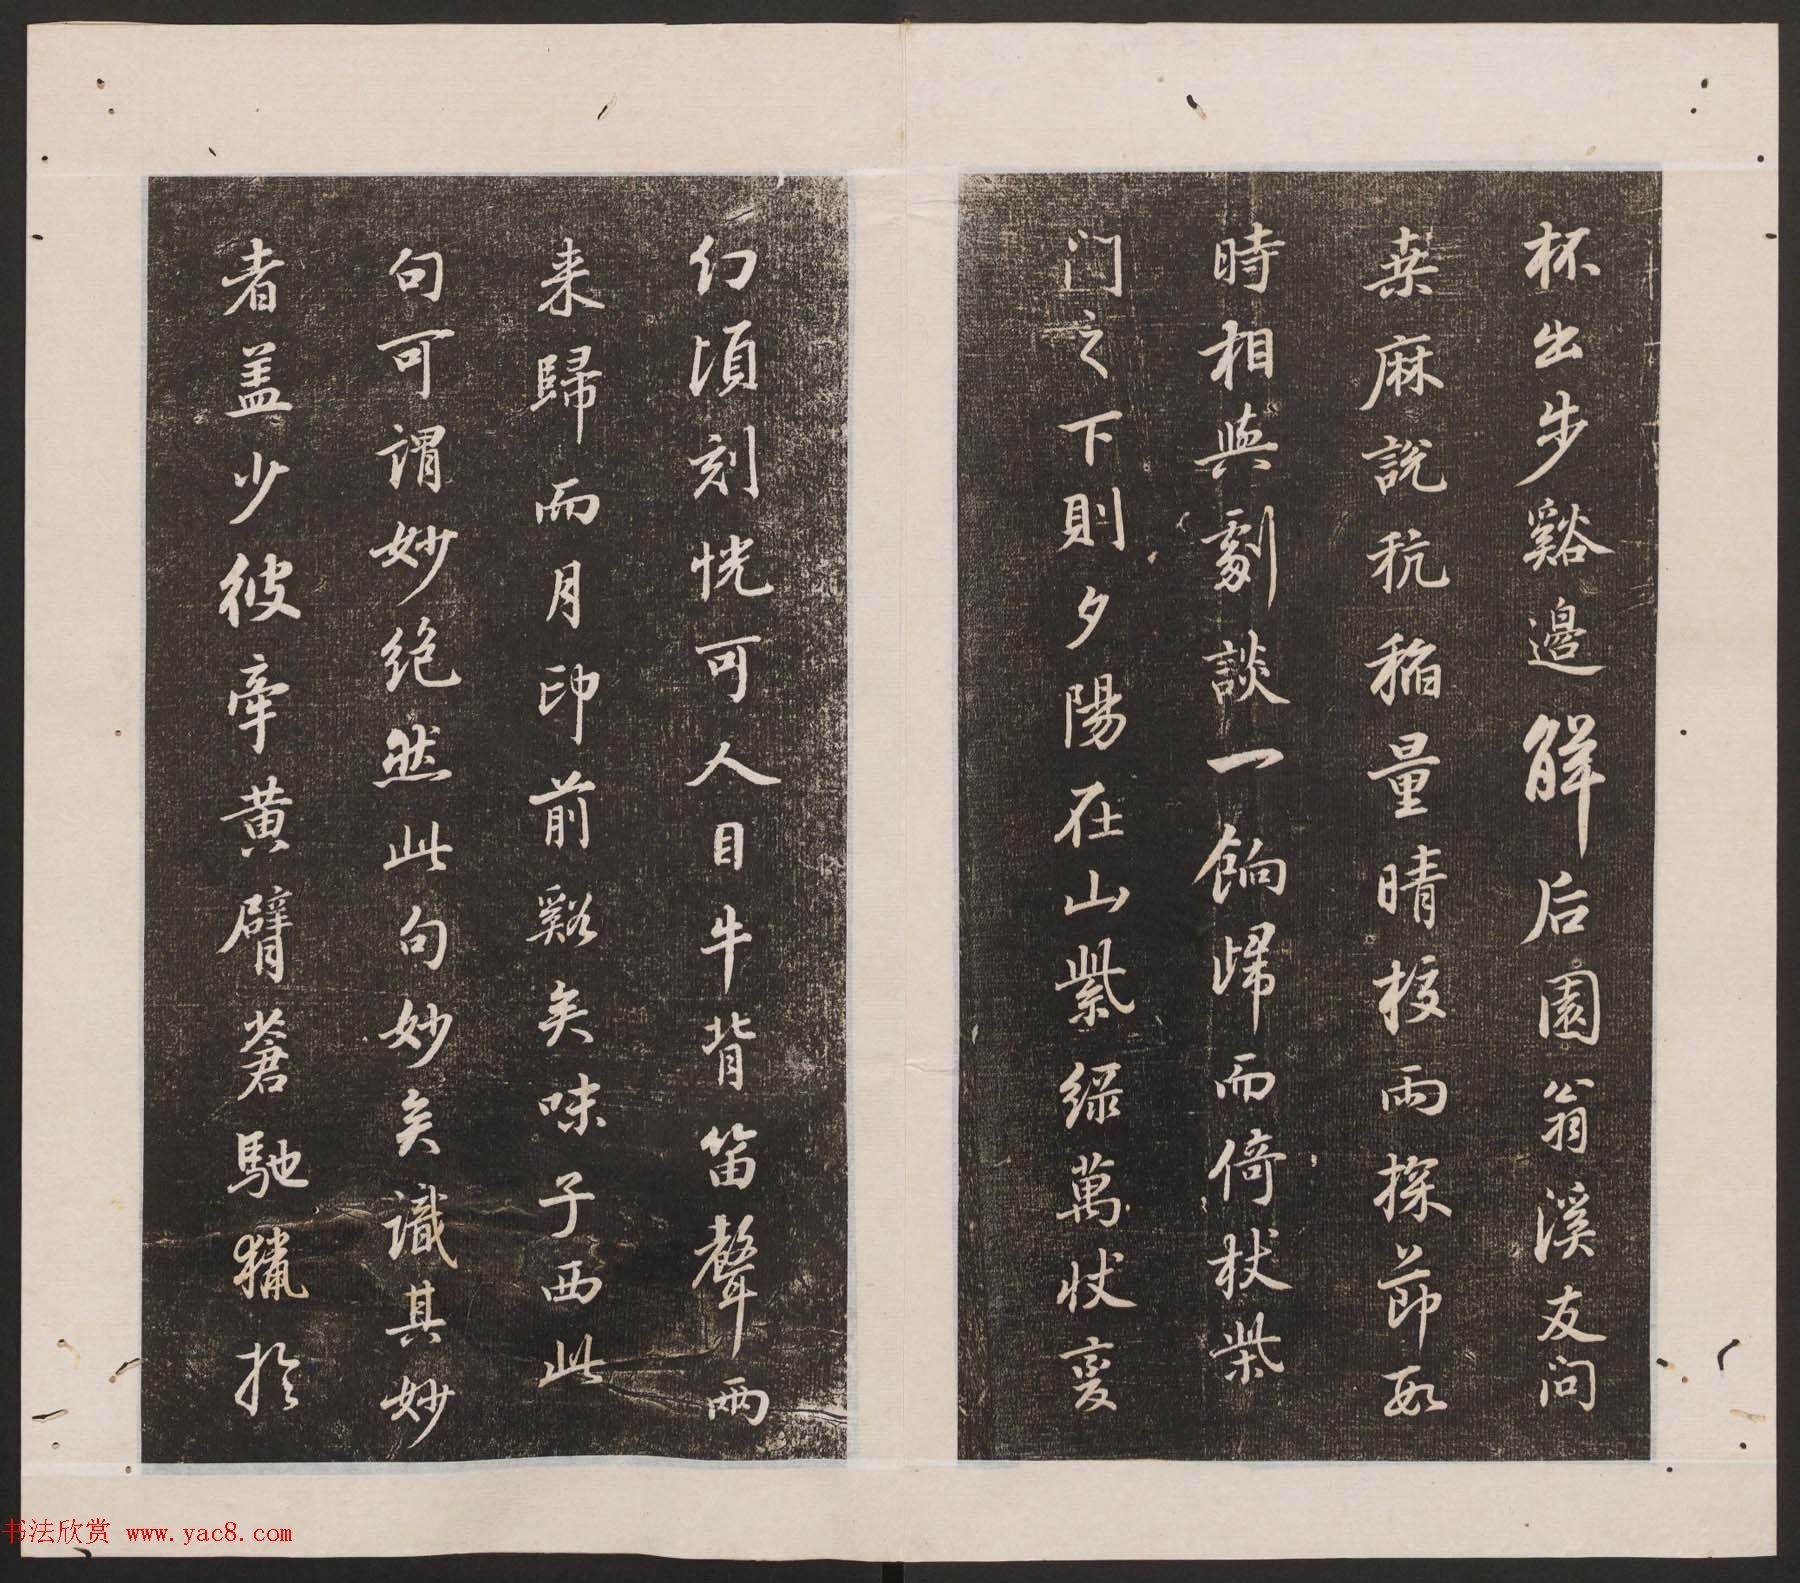 杯出步谿邊解后園翁溪友問
桒麻說秔稲量晴校雨探莭數
時相與劇談一餉歸而倚杖柴
门之下則夕陽在山紫綠萬狀变
幻頃刻恍可人目牛背笛聲兩
来歸而月印前谿矣味子西此
句可謂妙絶然此句妙矣識其妙
者盖少彼牽黄臂蒼馳獵扵
书法欣赏 www.yac8.com